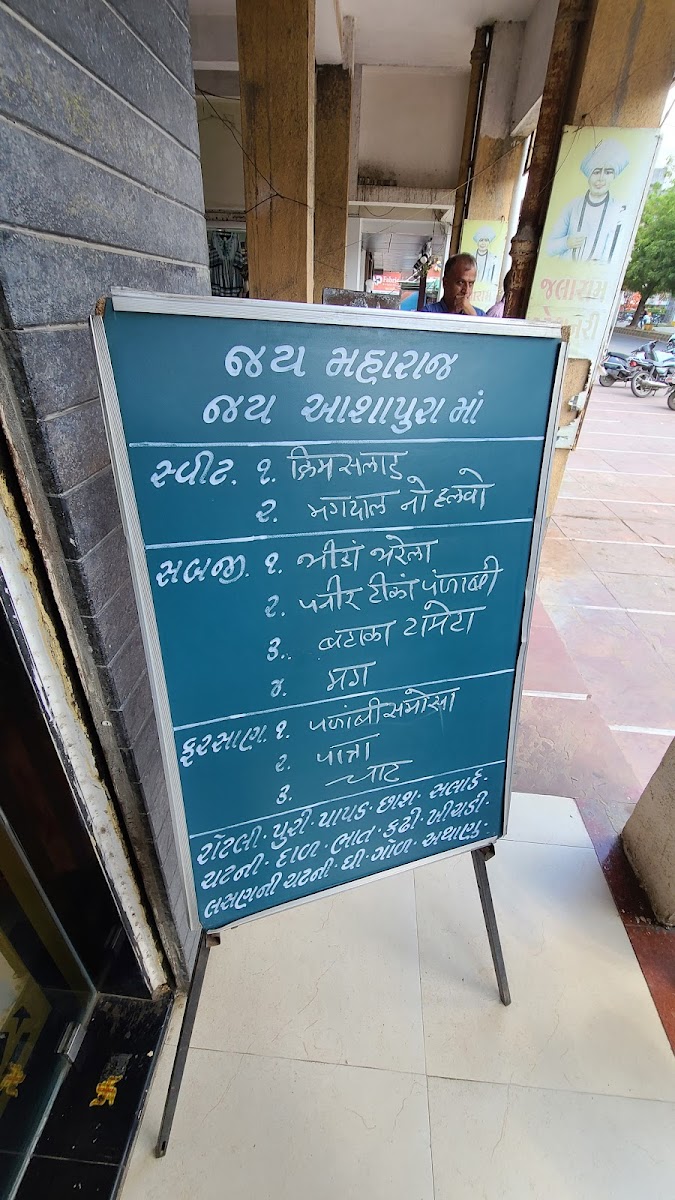 જય મહારાજ
જય આશાપુરા માં
સ્વીટ. ૧. ક્રિમસલાડ
૨. મગદાળ નો હલવો
સબજી. ૧. ભીંડા ભરેલા
૨. પનીર ટીકા પંજાબી
૩. બટાકા ટામેટા
૪. મગ
ફરસાણ. ૧. પંજાબી સમોસા
૨. પાત્રા
૩. ચાટ
રોટલી · પુરી · પાપડ · છાશ · સલાર્ડ ·
ચટની · દાળ · ભાત · કઢી · ખીચડી ·
લસણની ચટની · ઘી · ગોળ · અથાણુ ·
જલારામ